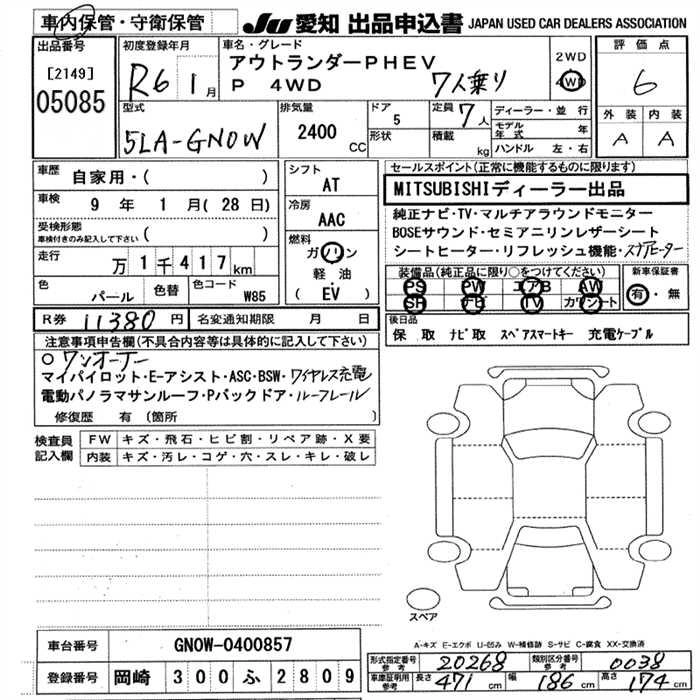 車内保管・守衛保管
JU 愛知 出品申込書 JAPAN USED CAR DEALERS ASSOCIATION
出品番号
[2149]
05085
初度登録年月
R6 1月
車名・グレード
アウトランダーPHEV
P 4WD 7人乗り
2WD
4WD
評価点
6
外装 内装
A A
型式
5LA-GN0W
排気量
2400 CC
ドア
5
形状
定員
7人
積載 kg
ディーラー・並行
モデル年式 年
ハンドル 左・右
車歴
自家用・( )
車検
9年 1月(28日)
受検形態
車検付きのみ記入して下さい ( )
走行
万1千417km
色
パール
色替
色コード
W85
シフト
AT
冷房
AAC
燃料
ガソリン
軽油・
( EV )
セールスポイント(正常に機能するものに限ります)
MITSUBISHIディーラー出品
純正ナビ・TV・マルチアラウンドモニター
BOSEサウンド・セミアニリンレザーシート
シートヒーター・リフレッシュ機能・ステアヒーター
装備品(純正品に限り○をつけてください)
PS PW エアB AW
SR ナビ TV カワシート
新車保証書
有・無
R券 11380円
名変通知期限 月 日
後日品
保 取 ナビ取 スペアスマートキー 充電ケーブル
注意事項申告欄(不具合内容等は具体的に記入して下さい)
○ワンオーナー
マイパイロット・E-アシスト・ASC・BSW・ワイヤレス充電
電動パノラマサンルーフ・Pバックドア・ルーフレール
修復歴 有 (箇所 )
検査員記入欄
FW キズ・飛石・ヒビ割・リペア跡・X要
内装 キズ・汚レ・コゲ・穴・スレ・キレ・破レ
スペア
A-キズ E-エクボ U-凹み W-補修跡 S-サビ C-腐食 XX-交換済
車台番号 GN0W-0400857
登録番号 岡崎 300 ふ 2809
形式指定番号 参考 20268 類別区分番号 参考 0038
車庫証明用 参考 長さ 471cm 幅 186cm 高さ 174cm